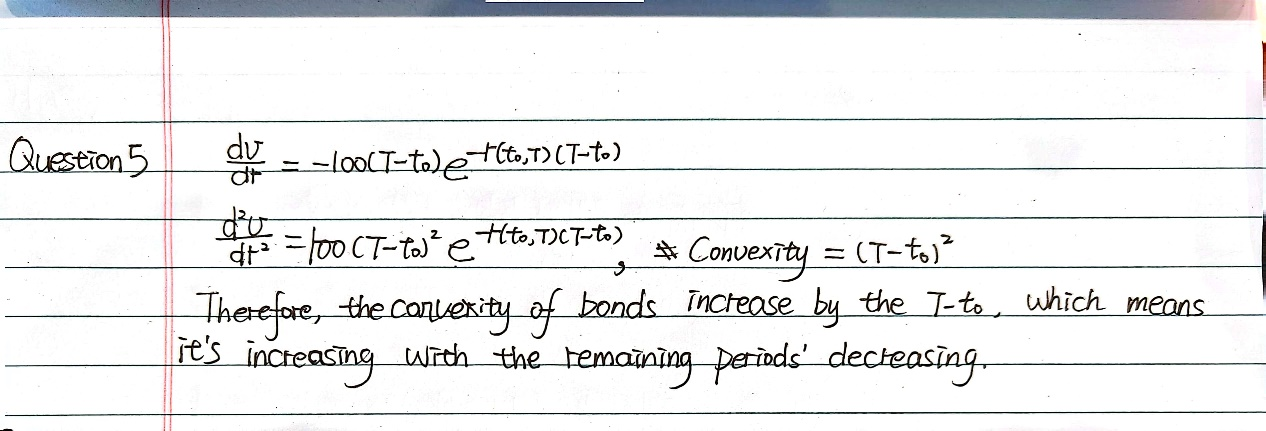 Question 5 dv/dr = -100(T-t₀)e^-r(t₀,T)(T-t₀)
d²v/dr² = 100(T-t₀)² e^-r(t₀,T)(T-t₀), * Convexity = (T-t₀)²
Therefore, the convexity of bonds increase by the T-t₀, which means
it's increasing with the remaining periods' decreasing.